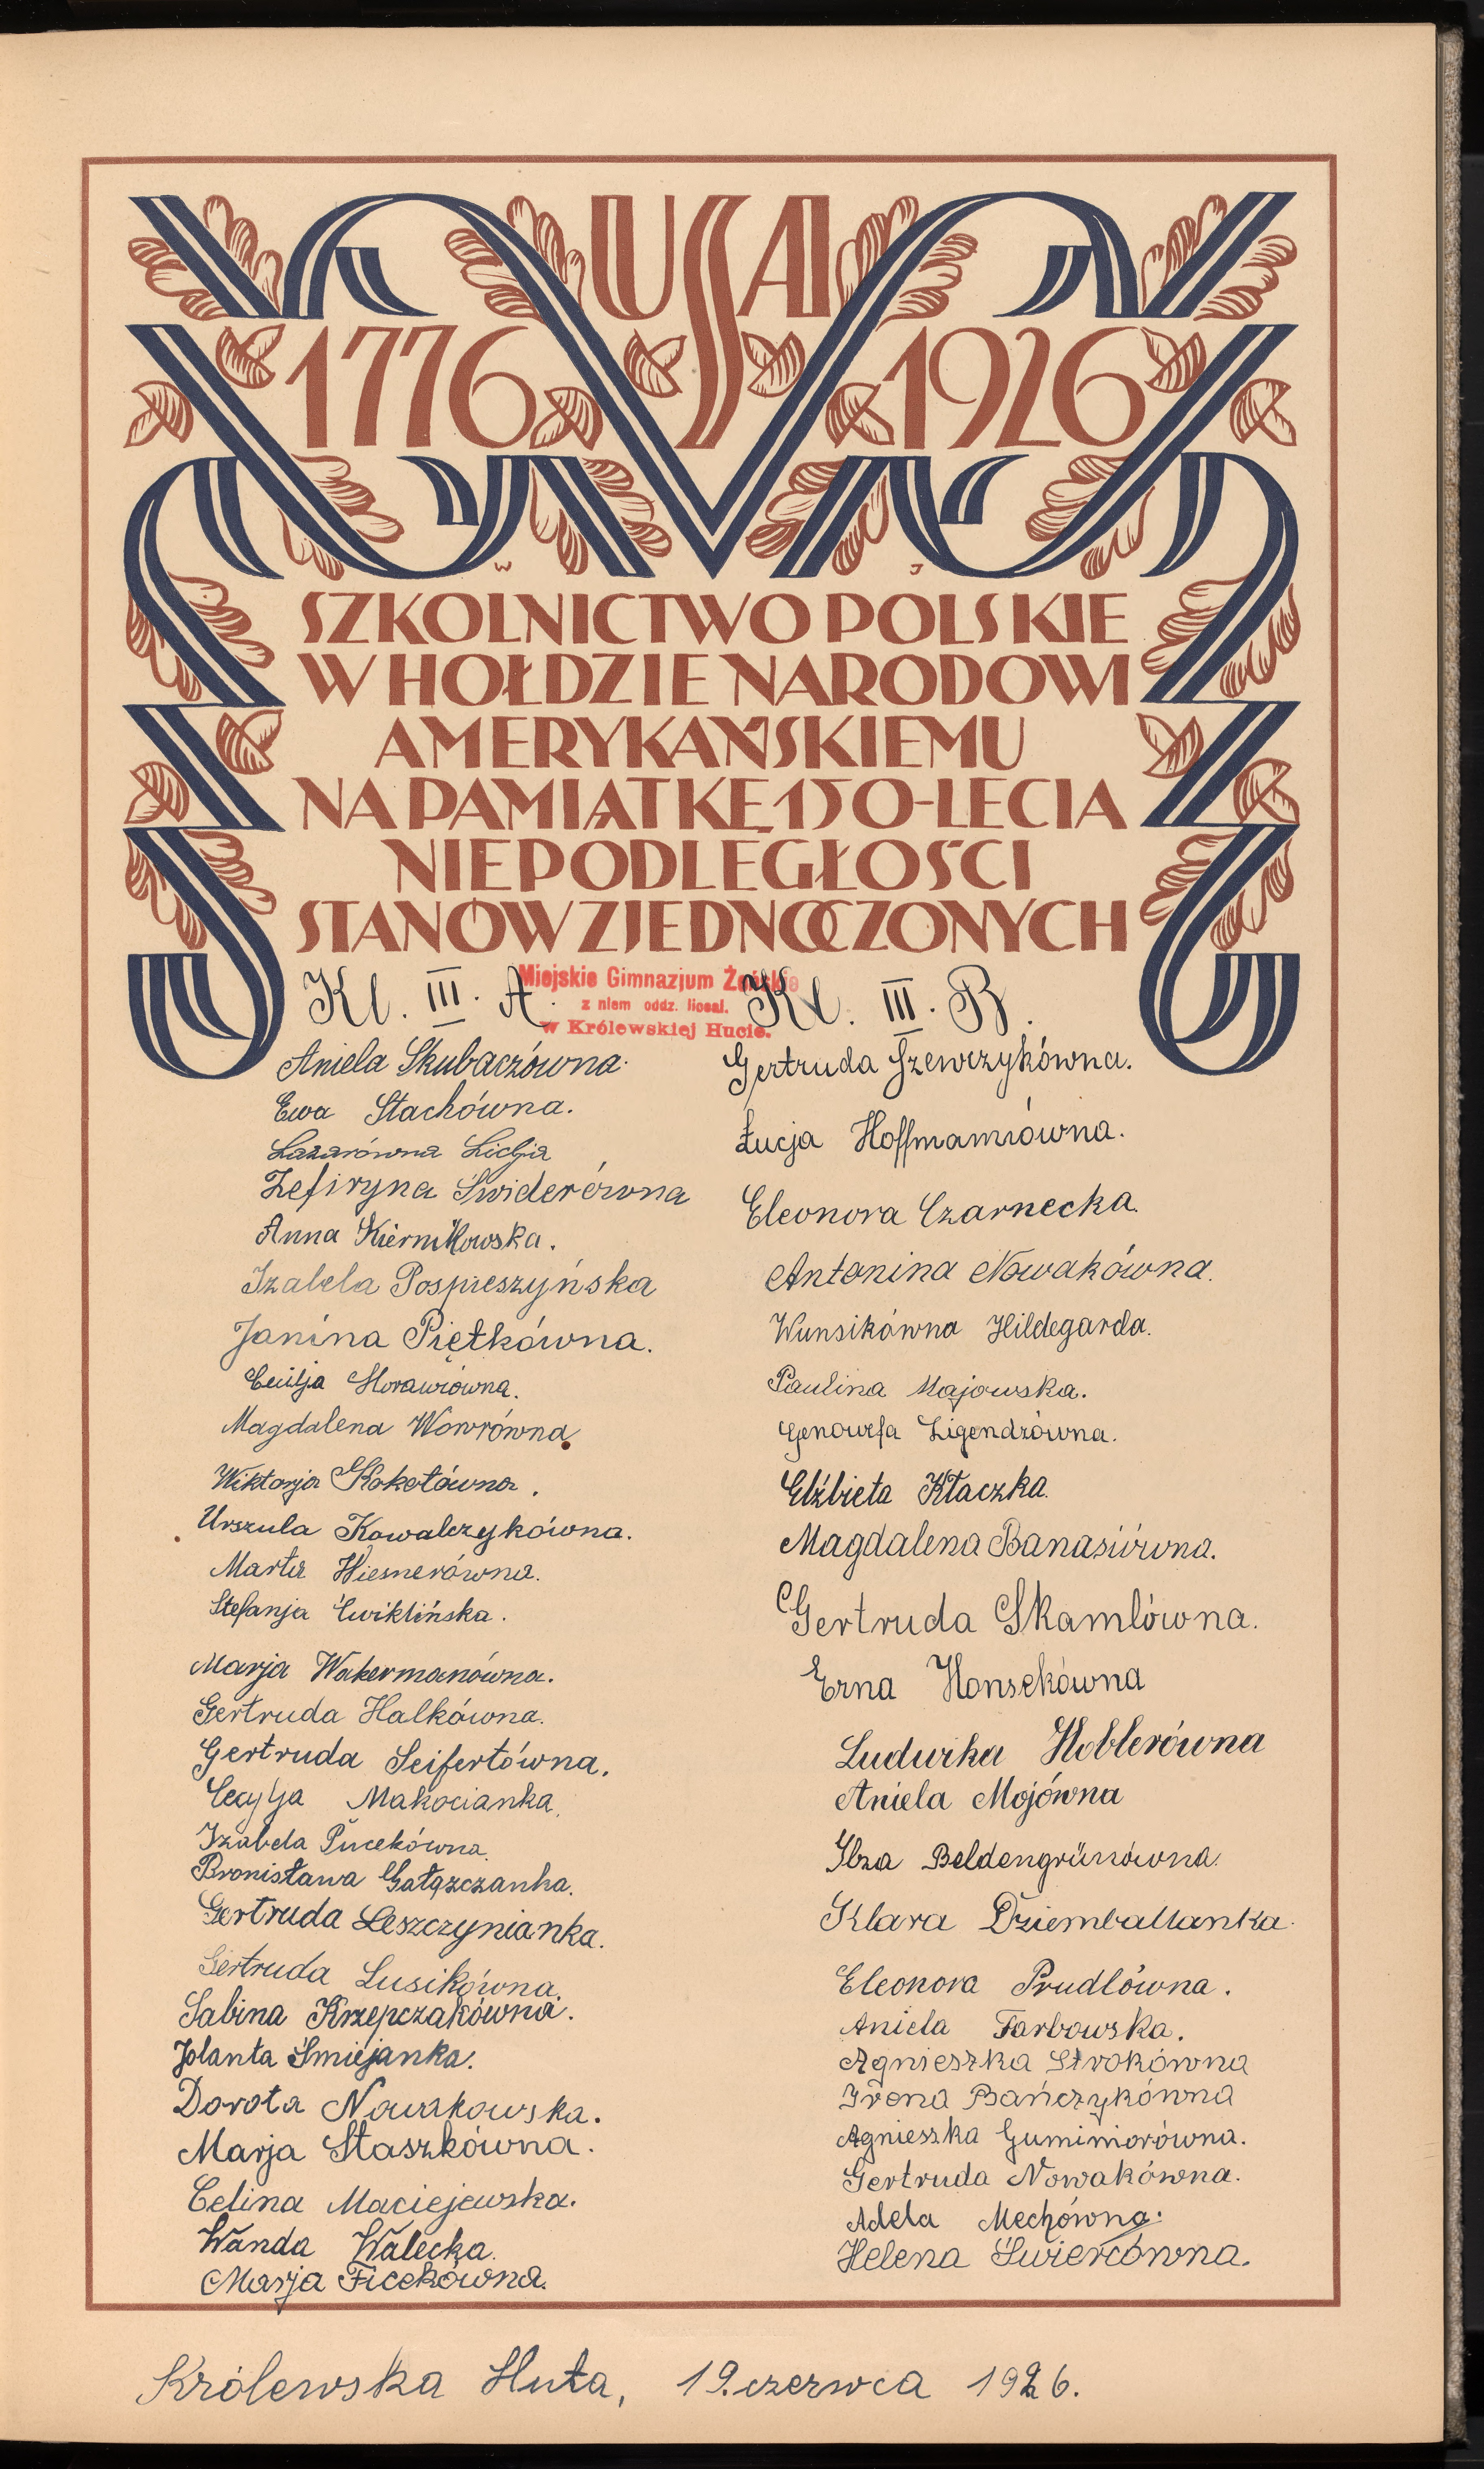 USA
1776 1926
W J
SZKOLNICTWO POLSKIE
W HOŁDZIE NARODOWI
AMERYKAŃSKIEMU
NA PAMIĄTKĘ 150-LECIA
NIEPODLEGŁOŚCI
STANÓW ZJEDNOCZONYCH
Miejskie Gimnazjum Żeńskie
z niem oddz. liceal.
w Królewskiej Hucie.
Kl. III. A.
Aniela Skubaczówna.
Ewa Stachówna.
Lazarówna Lidja
Zefiryna Świderówna
Anna Kiernikowska.
Izabela Pospieszyńska
Janina Piętkówna.
Cecilja Morawiówna.
Magdalena Wowrówna.
Wiktorja Kokotówna.
Urszula Kowalczykówna.
Marta Wiesnerówna.
Stefanja Ćwiklińska.
Marja Wakermanówna.
Gertruda Halkówna.
Gertruda Seifertówna.
Cecylja Makocianka.
Izabela Pucekówna.
Bronisława Gałązczanka.
Gertruda Leszczynianka.
Gertruda Lusikówna.
Sabina Krzepczakówna.
Jolanta Śmiejanka.
Dorota Nowakowska.
Marja Staszkówna.
Celina Maciejewska.
Wanda Walecka.
Marja Ficekówna.
Kl. III. B.
Gertruda Szewczykówna.
Łucja Hoffmannówna.
Eleonora Czarnecka.
Antonina Nowakówna.
Wunsikówna Hildegarda.
Paulina Majowska.
Genowefa Ligendzówna.
Elżbieta Kłaczka.
Magdalena Banasiówna.
Gertruda Skamlówna.
Erna Honsekówna
Ludwika Hoblerówna
Aniela Mojówna
Ilza Beldengrünówna.
Klara Dziemballanka.
Eleonora Prudlówna.
Aniela Farbowska.
Agnieszka Strokówna
Irena Bańczykówna
Agnieszka Gumimorówna.
Gertruda Nowakówna.
Adela Mechówna.
Helena Świercówna.
Królewska Huta, 19. czerwca 1926.